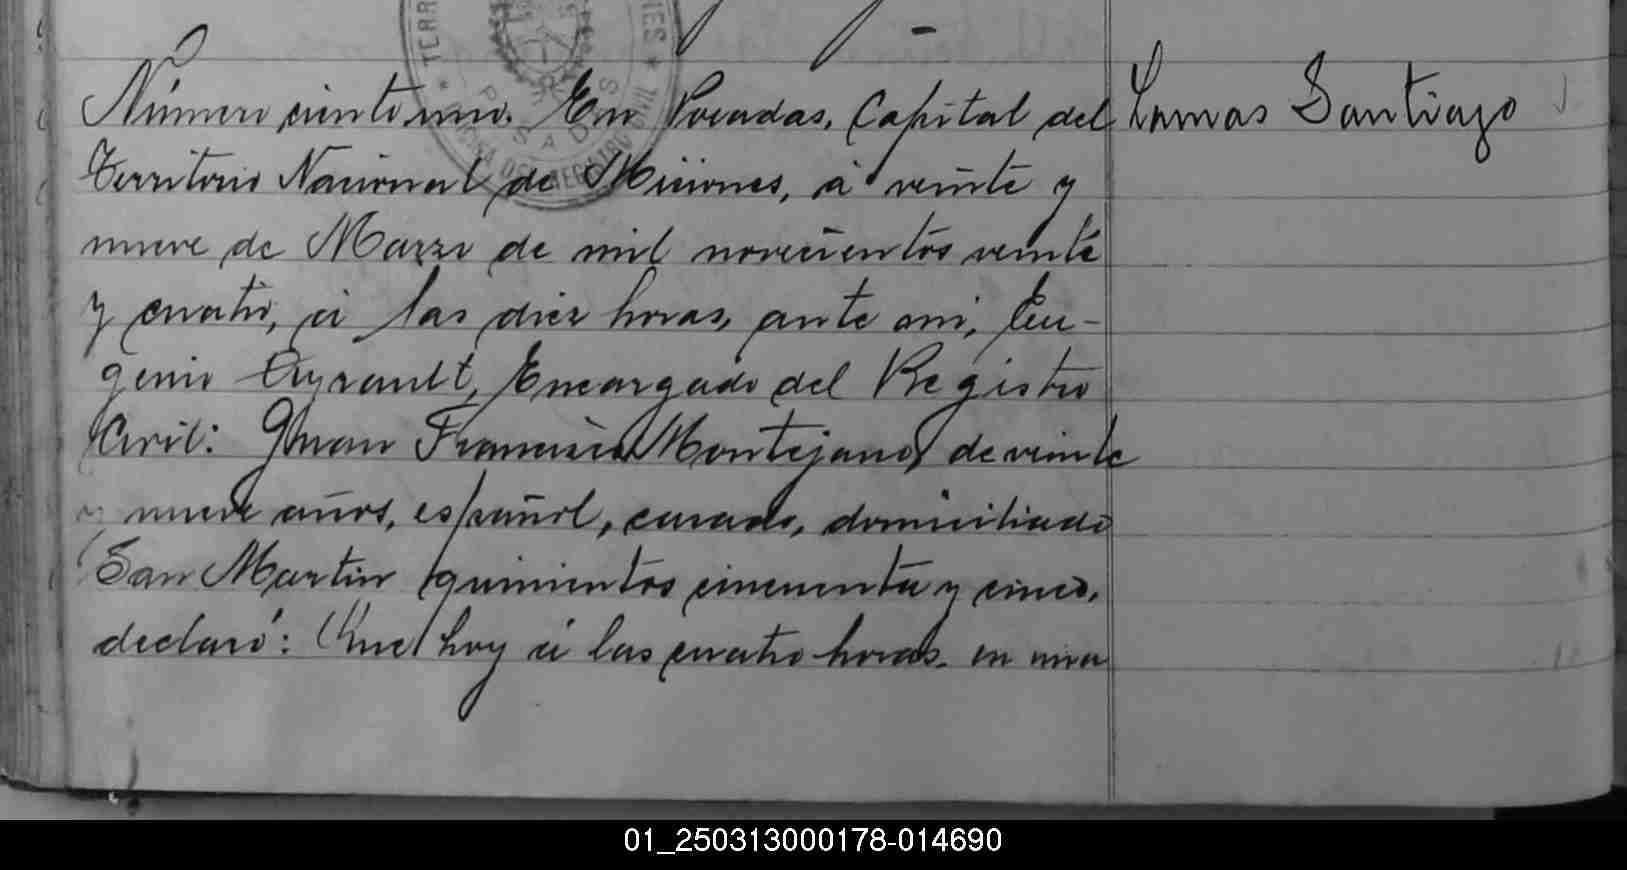 Número ciento uno. En Posadas, Capital del
Lamas Santiago
Territorio Nacional de Misiones, á veinte y
nueve de Marzo de mil novecientos veinte
y cuatro, á las diez horas, ante mi, Eu-
genio Ayrault, Encargado del Registro
Civil: Juan Francisco Montejano, de veinte
y nueve años, español, casado, domiciliado
San Martin quinientos cincuenta y cinco,
declaró: Que hoy á las cuatro horas, en una
01_250313000178-014690